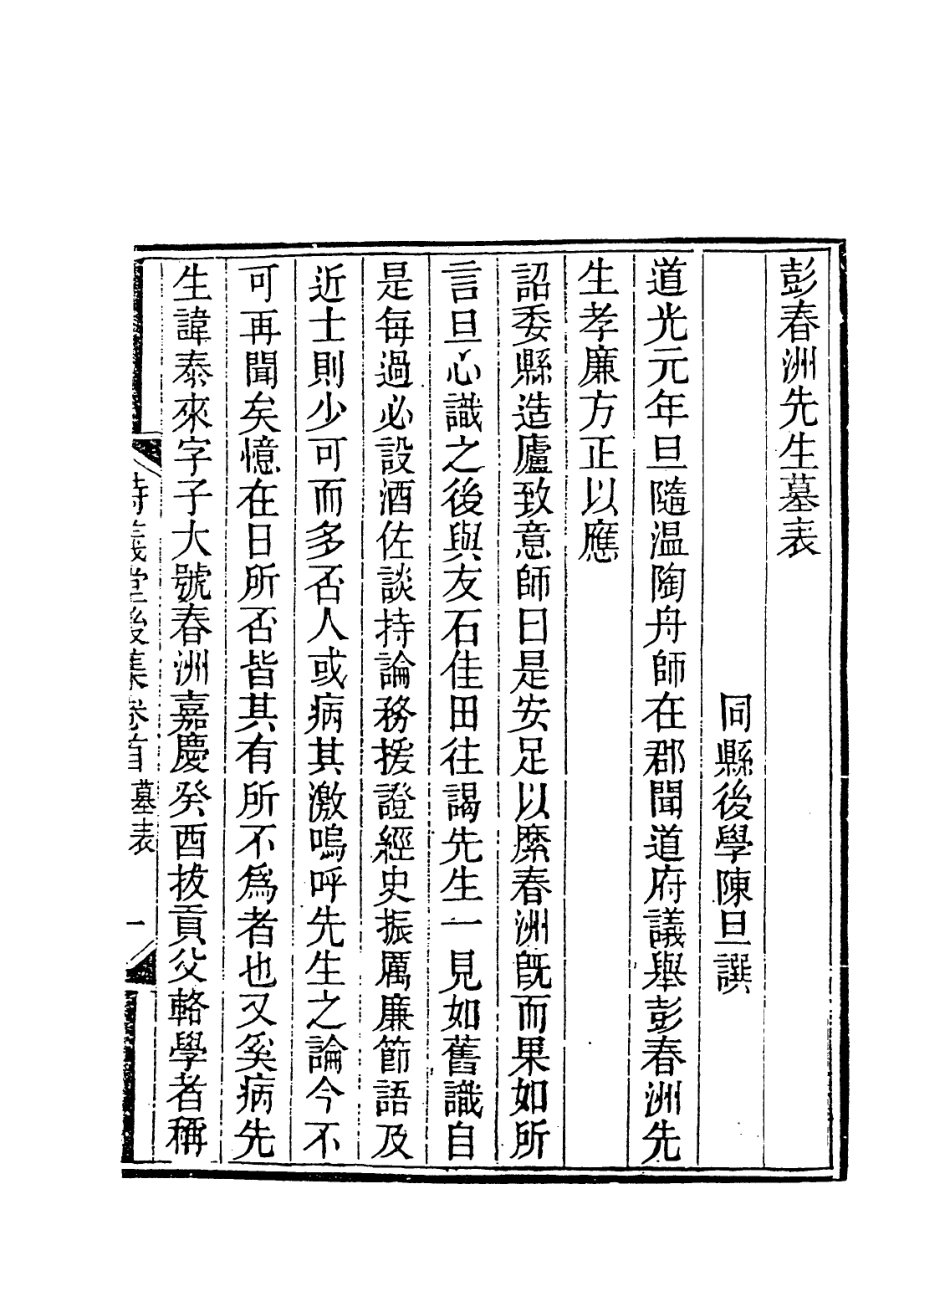 彭春洲先生墓表
同縣後學陳旦譔
道光元年旦隨温陶舟師在郡聞道府議舉彭春洲先
生孝廉方正以應
詔委縣造廬致意師曰是安足以縻春洲旣而果如所
言旦心識之後與友石佳田往謁先生一見如舊識自
是每過必設酒佐談持論務援證經史振厲廉節語及
近士則少可而多否人或病其激嗚呼先生之論今不
可再聞矣憶在日所否皆其有所不爲者也又奚病先
生諱泰來字子大號春洲嘉慶癸酉拔貢父輅學者稱
詩義堂後集卷首 墓表 一